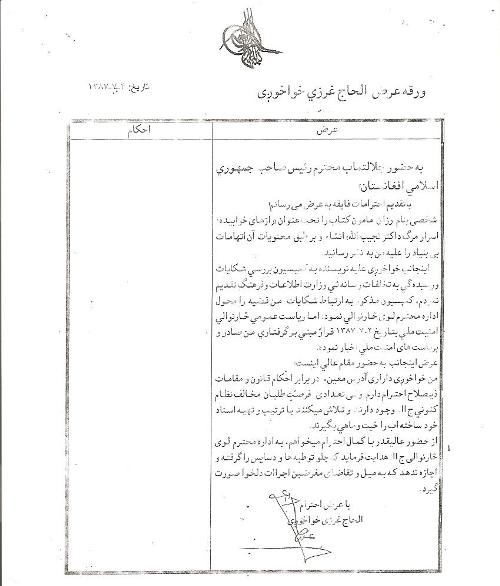 ورقه عرض الحاج غرزي خواخوږی
تاریخ: ۱۳۸۷
عرض
احکام
به حضور جلالتماب محترم رئیس صاحب جمهوري
اسلامي افغانستان!
با تقدیم احترامات فایقه به عرض می رسانم!
شخصی بنام رزاق مامون کتاب را تحت عنوان رازهای خوابیده:
اسرار مرگ داکتر نجیب الله، انشاء و بر طبق محتویات آن اتهامات
بی بنیاد را علیه من به نشر رسانید.
اینجانب خواخوږی علیه نویسنده به کمیسیون بررسی شکایات
ورسیده گی به تخلفات رسانه ئی وزارت اطلاعات و فرهنگ تقدیم
نمودم، کمیسیون مذکور به ارتباط شکایات من قضیه را محول
اداره محترم لوی څارنوالي نمود. اما ریاست عمومی څارنوالي
امنیت ملي بتاریخ ۱۳۸۷،۷،۲ قرار مبنی بر گرفتاری من صادر و
بریاست های امنیت ملي اخبار نموده.
عرض اینجانب به حضور مقام عالي اینست:
من خواخوږی دارای آدرس معین، در برابر احکام قانون و مقامات
ذیصلاح احترام دارم ولی تعدادی فرصت طلبان مخالف نظام
کنونی ج ا ا. وجود دارند و تلاش میکنند با ترتیب و تهیه اسناد
خود ساخته آب را خت و ماهی بگیرند.
از حضور عالیقدر با کمال احترام میخواهم، به اداره محترم لوی
څارنوالي ج ا ا. هدایت فرماید که جلو توطیه ها و دسایس را گرفته و
اجازه ندهد که به میل و تقاضای مغرضین اجراآت دلخواه صورت
گیرد.
با عرض احترام
الحاج غرزي خواخوږی